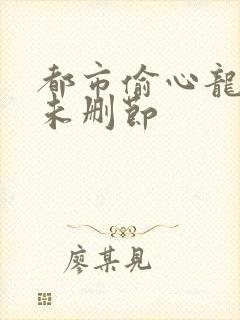 都市偷心龍
未删節
廖某見